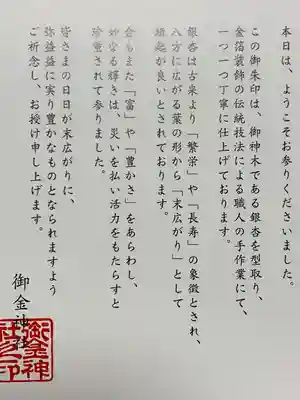 本日は、ようこそお参りくださいました。
この御朱印は、御神木である銀杏を型取り、
金箔装飾の伝統技法による職人の手作業にて、
一つ一つ丁寧に仕上げております。
銀杏は古来より「繁栄」や「長寿」の象徴とされ、
八方に広がる葉の形から「末広がり」として
縁起が良いとされております。
金もまた「富」や「豊かさ」をあらわし、
妙なる輝きは、災いを払い活力をもたらすと
珍重されて参りました。
皆さまの日日が末広がりに、
弥益益に実り豊かなものとなられますよう
ご祈念し、お授け申し上げます。
御金神社
御金神社之印